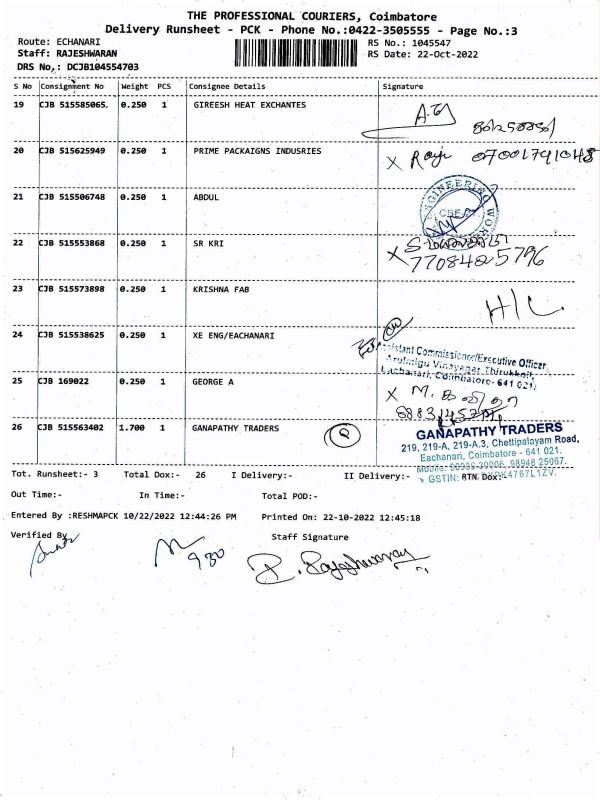 THE PROFESSIONAL COURIERS, Coimbatore
Delivery Runsheet - PCK - Phone No.:0422-3505555 - Page No.:3
Route: ECHANARI
RS No.: 1045547
Staff: RAJESHWARAN
RS Date: 22-Oct-2022
DRS No.: DCJB104554703
S No Consignment No Weight PCS Consignee Details Signature
19 CJB 515585065. 0.250 1 GIREESH HEAT EXCHANTES
20 CJB 515625949 0.250 1 PRIME PACKAIGNS INDUSRIES
X Raji 07001791048
21 CJB 515506748 0.250 1 ABDUL
ENGINEERING WORKS
22 CJB 515553868 0.250 1 SR KRI
X
7708425796
23 CJB 515573898 0.250 1 KRISHNA FAB
H/C.
24 CJB 515538625 0.250 1 XE ENG/EACHANARI
Assistant Commissioner/Executive Officer
Arulmigu Vinayagar Thirukkoil,
Eachanari, Coimbatore - 641 021.
25 CJB 169022 0.250 1 GEORGE A
X M. கவிதா
26 CJB 515563402 1.700 1 GANAPATHY TRADERS
GANAPATHY TRADERS
219, 219-A, 219-A.3, Chettipalayam Road,
Eachanari, Coimbatore - 641 021.
98948 25067.
Tot. Runsheet:- 3 Total Dox:- 26 I Delivery:- II Delivery:- RTN Dox:-
GSTIN:
Out Time:- In Time:- Total POD:-
Entered By :RESHMAPCK 10/22/2022 12:44:26 PM Printed On: 22-10-2022 12:45:18
Verified By Staff Signature
930
R. Rajeshwaran